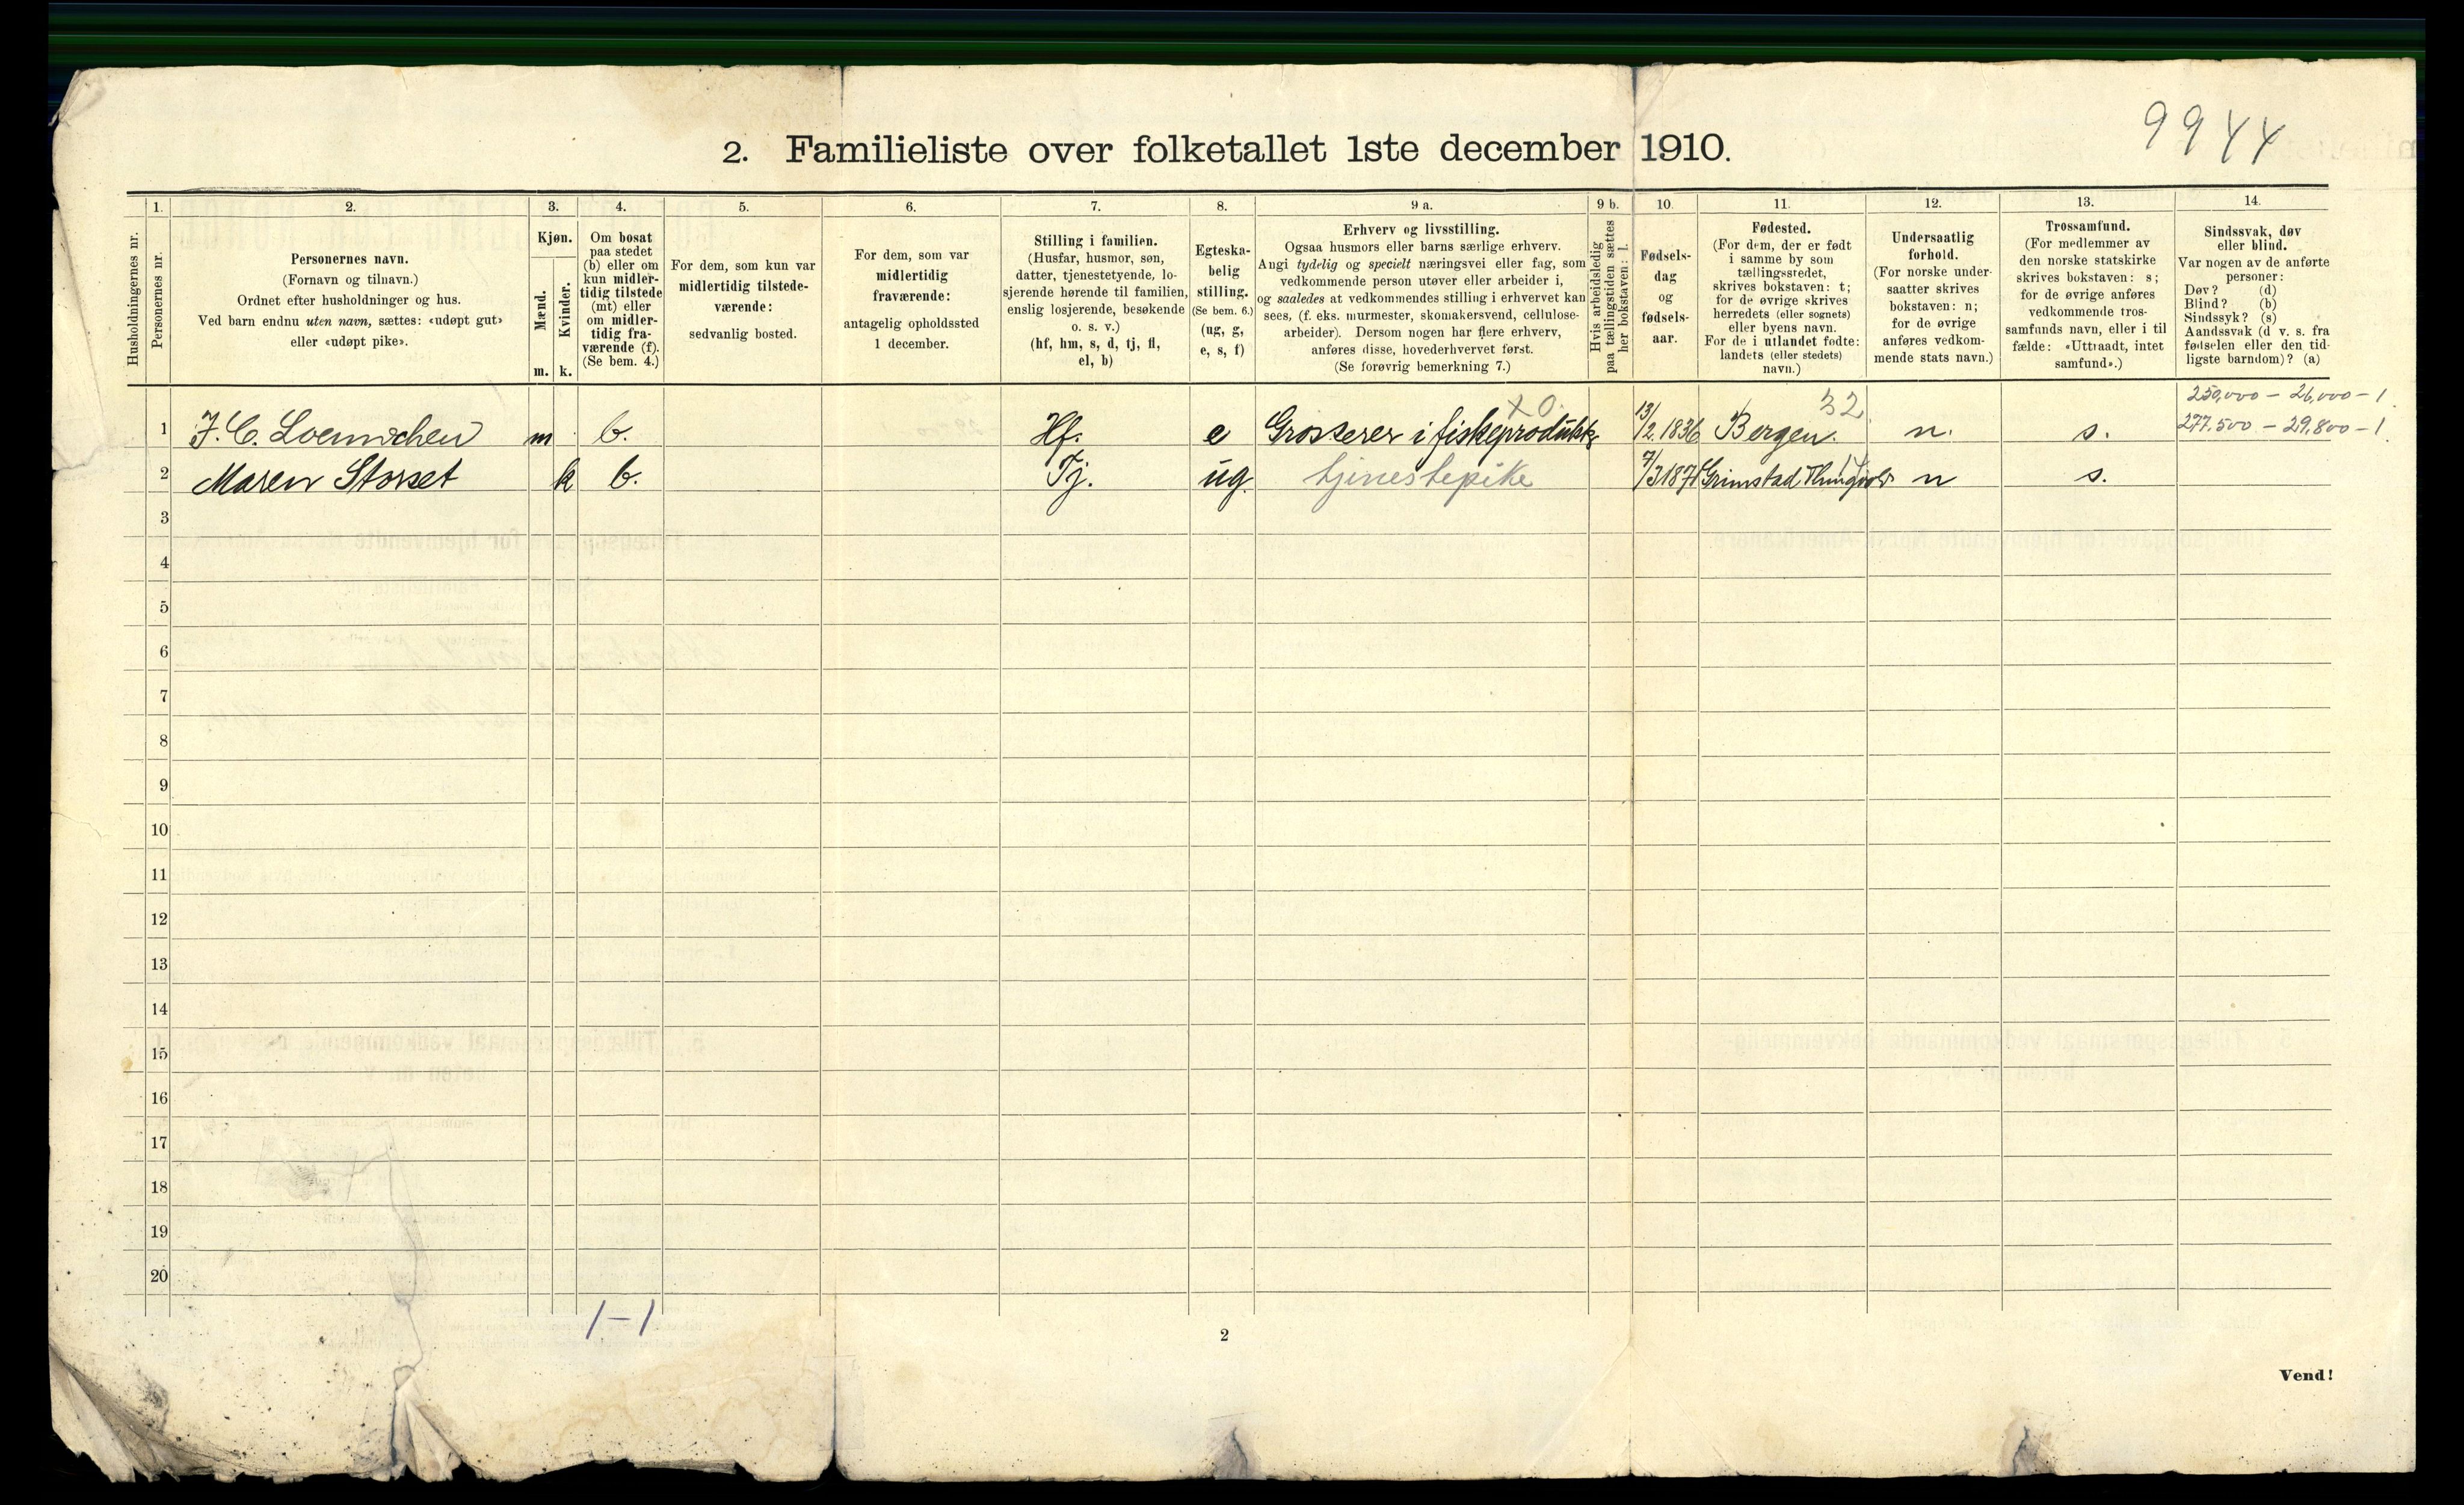 9944
2. Familieliste over folketallet 1ste december 1910.
1. 2. 3. 4. 5. 6. 7. 8. 9 a. 9 b. 10. 11. 12. 13. 14.
Husholdningernes nr.
Personernes nr.
Personernes navn.
(Fornavn og tilnavn.)
Ordnet efter husholdninger og hus.
Ved barn endnu uten navn, sættes: «udøpt gut»
eller «udøpt pike».
Kjøn.
Mænd.
m.
Kvinder.
k.
Om bosat
paa stedet
(b) eller om
kun midler-
tidig tilstede
(mt) eller
om midler-
tidig fra-
værende (f).
(Se bem. 4.)
For dem, som kun var
midlertidig tilstede-
værende:
sedvanlig bosted.
For dem, som var
midlertidig
fraværende:
antagelig opholdssted
1 december.
Stilling i familien.
(Husfar, husmor, søn,
datter, tjenestetyende, lo-
sjerende hørende til familien,
enslig losjerende, besøkende
o. s. v.)
(hf, hm, s, d, tj, fl,
el, b)
Egteska-
belig
stilling.
(Se bem. 6.)
(ug, g,
e, s, f)
Erhverv og livsstilling.
Ogsaa husmors eller barns særlige erhverv.
Angi tydelig og specielt næringsvei eller fag, som
vedkommende person utøver eller arbeider i,
og saaledes at vedkommendes stilling i erhvervet kan
sees, (f. eks. murmester, skomakersvend, cellulose-
arbeider). Dersom nogen har flere erhverv,
anføres disse, hovederhvervet først.
(Se forøvrig bemerkning 7.)
Hvis arbeidsledig
paa tællingstiden sættes
her bokstaven: l.
Fødsels-
dag
og
fødsels-
aar.
Fødested.
(For dem, der er født
i samme by som
tællingsstedet,
skrives bokstaven: t;
for de øvrige skrives
herredets (eller sognets)
eller byens navn.
For de i utlandet fødte:
landets (eller stedets)
navn.)
Undersaatlig
forhold.
(For norske under-
saatter skrives
bokstaven: n;
for de øvrige
anføres vedkom-
mende stats navn.)
Trossamfund.
(For medlemmer av
den norske statskirke
skrives bokstaven: s;
for de øvrige anføres
vedkommende tros-
samfunds navn, eller i til
fælde: «Uttraadt, intet
samfund».)
Sindssvak, døv
eller blind.
Var nogen av de anførte
personer:
Døv? (d)
Blind? (b)
Sindssyk? (s)
Aandssvak (d v. s. fra
fødselen eller den tid-
ligste barndom)? (a)
x0. 32 250,000 - 26,000 - 1.
1 J. C. Loennechen m b. Hf. e Grosserer i fiskeprodukt 13/2 1836 Bergen. n. s. 277,500 - 29,800 - 1.
2 Maren Storset k b. Tj. ug. tjinestepike 7/3 187 Grimstad n s.
3
4
5
6
7
8
9
10
11
12
13
14
15
16
17
18
19
20
1-1
2
Vend!